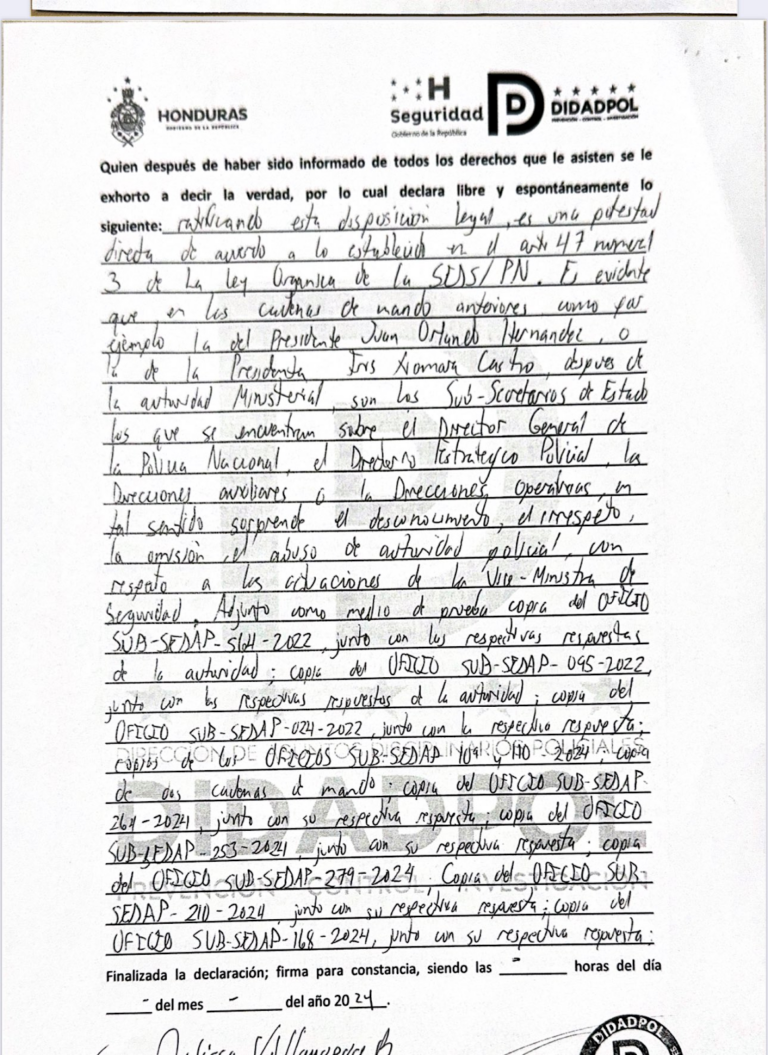 HONDURAS
GOBIERNO DE LA REPÚBLICA
H
Seguridad
Gobierno de la República
DIDADPOL
Quien después de haber sido informado de todos los derechos que le asisten se le
exhorto a decir la verdad, por lo cual declara libre y espontáneamente lo
siguiente: ratificando esta disposición legal, es una potestad
directa de acuerdo a lo establecido en el arti 47 numeral
3 de La ley Organica de la SEDS/PN. Es evidente
que en las cadenas de mando anteriores como por
ejemplo la del Presidente Juan Orlando Hernandez, o
la de la Presidenta Iris Xiomara Castro, despues de
la autoridad Ministerial, son los Sub-Secretarios de Estado
los que se encuentran sobre el Director General de
la Policia Nacional, el Directorio Estrategico Policial, las
Direcciones auxiliares o la Direcciones Operativas, en
tal sentido sorprende el desconocimiento, el irrespeto,
la omisión, el abuso de autoridad policial, con
respeto a las actuaciones de la Vice-Ministra de
Seguridad, Adjunto como medio de prueba copia del OFICIO
SUB-SEDAP-564-2022, junto con las respectivas respuestas
de la autoridad; copia del OFICIO SUB-SEDAP-095-2022,
junto con las respectivas respuestas de la autoridad; copia del
OFICIO SUB-SEDAP-024-2022, junto con la respectiva respuesta;
copias de los OFICIOS SUB-SEDAP 109 y 110 2024; copia
de dos cadenas de mando; copia del OFICIO SUB-SEDAP-
264-2024, junto con su respectiva respuesta; copia del OFICIO
SUB-SEDAP-253-2024, junto con su respectiva respuesta; copia
del OFICIO SUB-SEDAP-279-2024; Copia del OFICIO SUB-
SEDAP-210-2024, junto con su respectiva respuesta; copia del
OFICIO SUB-SEDAP-168-2024, junto con su respectiva respuesta;
DIRECCIÓN DE ASUNTOS DISCIPLINARIOS POLICIALES
DIDADPOL
PREVENCIÓN CONTROL INVESTIGACIÓN
Finalizada la declaración; firma para constancia, siendo las - horas del día
- del mes - del año 2024.
DIDADPOL